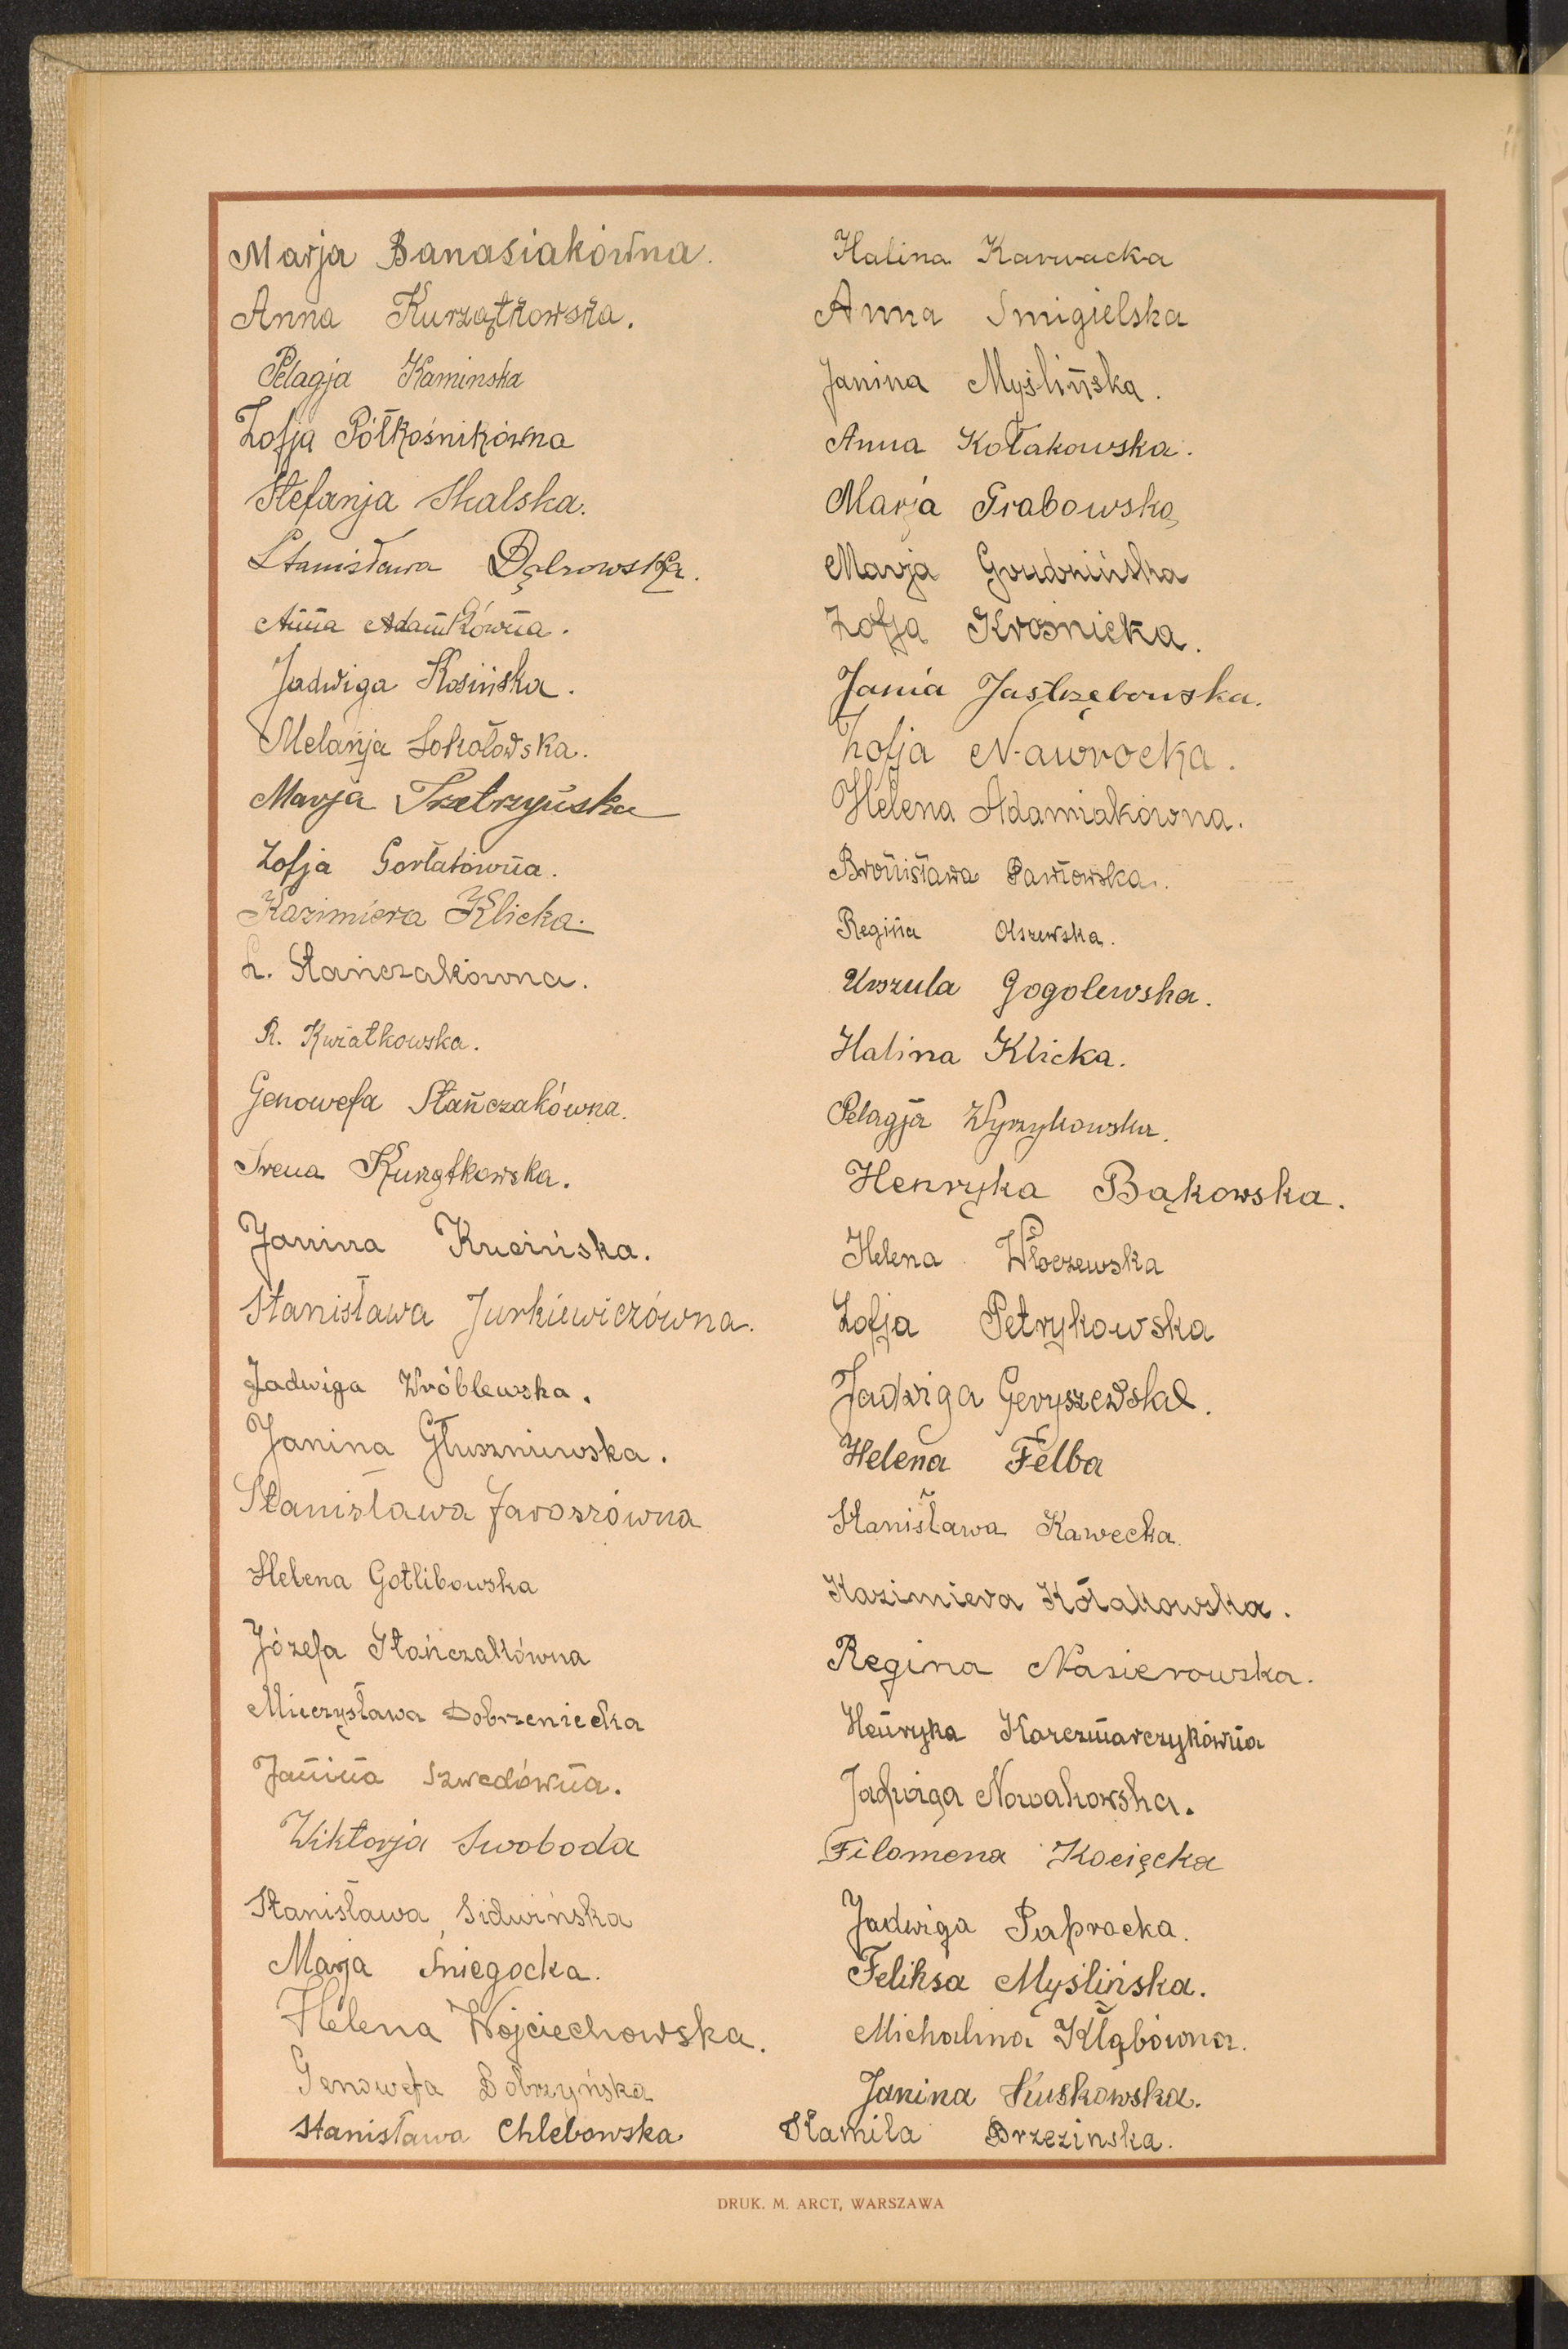 Marja Banasiakówna.
Anna Kurzątkowska.
Pelagja Kaminska
Zofja Półkośnikówna
Stefanja Skalska.
Stanisława Dąbrowska.
Anna Adamkówna.
Jadwiga Kosińska.
Melanja Sokołowska.
Marja Trzetrzyńska
Zofja Gorlatówna.
Kazimiera Klicka.
L. Stańczakówna.
R. Kwiatkowska.
Genowefa Stańczakówna.
Irena Kurzątkowska.
Janina Kucińska.
Stanisława Jurkiewiczówna.
Jadwiga Wróblewska.
Janina Głuszniewska.
Stanisława Jaroszówna
Helena Gotlibowska
Józefa Stańczakówna
Mieczysława Dobrzeniecka
Janina Szwedówna.
Wiktorja Swoboda
Stanisława Sidwińska
Marja Śniegocka.
Helena Wojciechowska.
Genowefa Dobrzyńska
Stanisława Chlebowska
Halina Karwacka
Anna Smigielska
Janina Myślińska.
Anna Kołakowska.
Marja Grabowska
Marja Grudzińska
Zofja Krośnicka.
Jania Jastrzębowska.
Zofja Nawrocka.
Helena Adamiakówna.
Bronisława Pawłowska.
Regina Olszewska.
Urszula Gogolewska.
Halina Klicka.
Pelagja Wyrzykowska.
Henryka Bąkowska.
Helena Włoczewska
Zofja Petrykowska
Jadwiga Geryszewska.
Helena Felba
Stanisława Kawecka.
Kazimiera Kołakowska.
Regina Nasierowska.
Henryka Karczmarczykówna
Jadwiga Nowakowska.
Filomena Kocięcka
Jadwiga Paprocka.
Feliksa Myślińska.
Michalina Kłąbówna.
Janina Kuskowska.
Kamila Brzezinska.
DRUK. M. ARCT, WARSZAWA